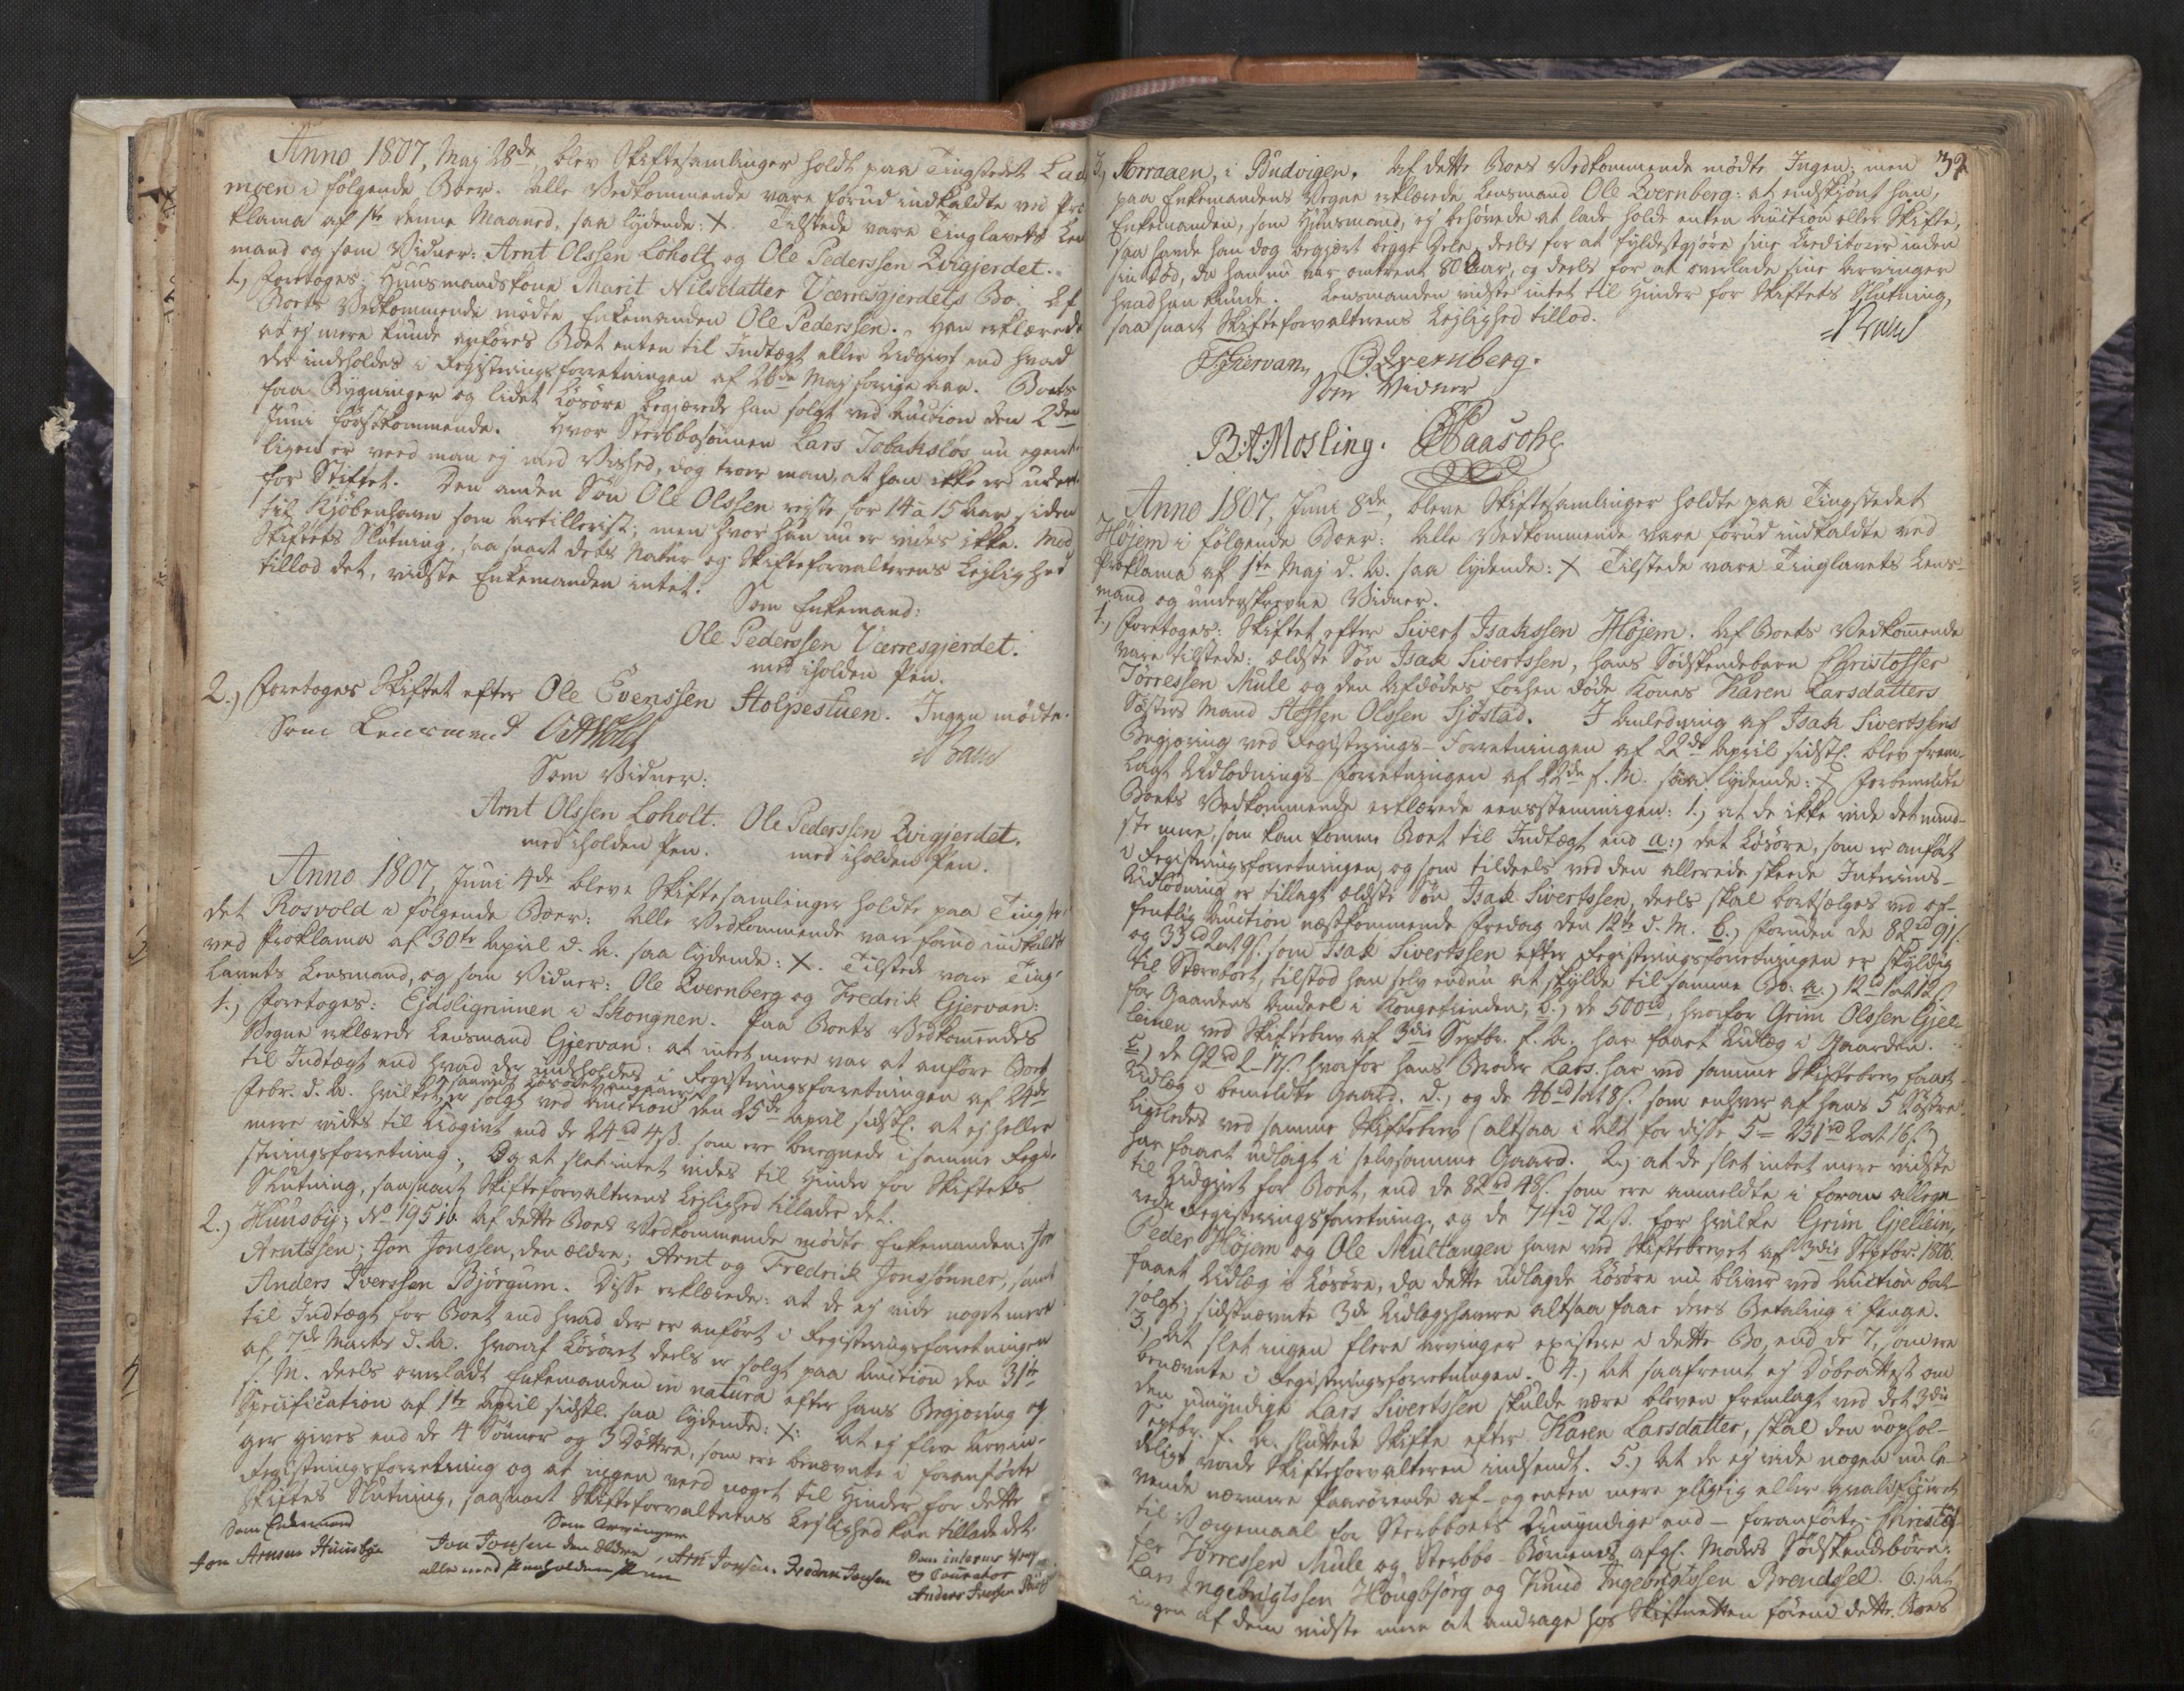 Anno 1807, Maj 28de, blev Skiftesamlinger holdt paa Tingstedet
moen i følgende Boer. Alle Vedkommende vare forud indkaldte ved Pro
klama af 1ste denne Maaned, saa lydende: X. Tilstede vare Tinglavets Len
mand og som Vidner: Arnt Olssen Loholt og Ole Pederssen Qvigjerdet.
1.) Foretoges: Huusmandskone Marit Nilsdatter Værresgjerdets Bo. Af
Boets Vedkommende mødte Enkemanden Ole Pederssen. Han erklærede
at ej mere kunde anføres Boet enten til Indtægt eller Udgivt end hvad
der indeholdes i Registringsforretningen af 28de Maj forrige Aar. Boets
faa Bygninger og lidet Løsøre begjærede han solgt ved Auction den 2den
Juni førstkommende. Hvor Sterbbosønnen Lars nu egent-
ligen er veed man ej med Vished, dog troer man, at han ikke er uden
for Stiftet. Den anden Søn Ole Olssen rejste for 14 à 15 Aar siden
til Kjøbenhavn som Artillerist; men hvor han nu er vides ikke. Mod
Skiftets Slutning, saa snart dets Natur og Skifteforvalterens Lejlighed
tillod det, vidste Enkemanden intet.
Som Enkemand:
Ole Pederssen Værresgjerdet.
med iholden Pen.
2.) Foretoges Skiftet efter Ole Evenssen Stolpestuen. Ingen mødte.
Som Lensmand
Som Vidner:
Arnt Olssen Loholt. Ole Pederssen Qvigjerdet.
med iholden Pen. med iholden Pen.
Anno 1807, Juni 4de bleve Skiftesamlinger holdte paa Tingste
det Rosvold i følgende Boer: Alle Vedkommende vare forud indkaldte
ved Proklama af 30te April d. A. saa lydende: X. Tilstede vare Ting-
lavets Lensmand, og som Vidner: Ole Qvernberg og Fredrik Gjervan:
1.) Foretoges: Ejdsligrinnen i Skongnen. Paa Boets Vedkommendes
Vegne erklærede Lensmand Gjervan: at intet mere var at anføre Boet
til Indtægt end hvad der indholdes i Registringsforretningen af 24de
Febr. d. A. hvilket, er solgt ved Auction den 25de April sidstl. at ej heller
mere vides til Udgivt end de 24 rd 4 s. som ere beregnede i samme Regi-
stringsforretning. Og at slet intet vides til Hinder for Skiftets
Slutning, saasnart Skifteforvalterens Lejlighed tillader det.
2.) Huusby, No 195 Af dette Boes Vedkommende mødte Enkemanden: Jon
Arntssen; Jon Jonssen, den ældre; Arnt og Fredrik Jonssønner, samt
Anders Iverssen Bjørgum. Disse erklærede: at de ej vide noget mere
til Indtægt for Boet end hvad der er anført i Registringsforretningen
af 7de Marts d. A. hvoraf Løsøret deels er solgt paa Auction den 31te
s. M. deels overladt Enkemanden in natura efter hans Begjæring og
Specification af 1te April sidstl. saa lydende: X: At ej flere Arvin-
ger gives end de 4 Sønner og 3 Døttre, som ere benævnte i foranførte
Registringsforretning og at ingen veed noget til Hinder for dette
Skiftes Slutning, saasnart Skifteforvalterens Lejlighed kan tillade det.
Som Enkemand Som Arvinger
Jon Arnsen Huusbye Jon Jonsen den Ældre, Arn Jonsen. Fredrik Jonsen
alle med paaholden Pen
Som interims
og Courator
Anders Iversen
3.) Aorraaen, i Budvigen. Af dette Boes Vedkommende mødte Ingen; men 32
paa Enkemandens Vegne erklærede Lensmand Ole Qvernberg: at endskjønt han,
Enkemanden, som Huusmand, ej behøvede at lade holde enten Auction eller Skifte,
saa havde han dog begjært begge Dele, deels for at fyldestgjøre sine Creditorer inden
sin Død, da han nu var omtrent 80 Aar, og deels for at overlade sine Arvinger
hvad han kunde. Lensmanden vidste intet til Hinder for Skiftets Slutning,
saa snart Skifteforvalterens Lejlighed tillod.
Giervan, O. Qvernberg.
Som Vidner
B. A. Mosling. Paasche
Anno 1807, Juni 8de, bleve Skiftesamlinger holdte paa Tingstedet
Højem i følgende Boer: Alle Vedkommende vare forud indkaldte ved
Proklama af 1ste Maj d. A. saa lydende: X Tilstede vare Tinglavets Lens-
mand og underskrevne Vidner.
1.) Foretoges: Skiftet efter Sivert Isakssen Højem. Af Boets Vedkommende
vare tilstede: ældste Søn Isak Sivertssen, hans Sødskendebarn Christoffer
Tørressen Mule og den Afdødes forhen døde Kones Karen Larsdatters
Søsters Mand Steffen Olssen Sjøstad. I Anledning af Isak Sivertssens
Begjæring ved Registrings-Forretningen af 22de April sidstl. blev frem-
lagt Udlodnings-Forretningen af 22de s. M. saa lydende: X Forbemeldte
Boets Vedkommende erklærede eensstemmigen: 1.) at de ikke vide det mind-
ste mere, som kan komme Boet til Indtægt end a:) det Løsøre, som er anført
i Registringsforretningen, og som tildeels ved den allerede skeede Interims-
Udlodning er tillagt ældste Søn Isak Sivertssen, deels skal bortsælges ved of-
fentlig Auction næstkommende Fredag den 12te d. M. b.) Foruden de 82 rd 91 s.
og 33 rd 2 ort 9 s. som Isak Sivertssen efter Registringsforretningen er skyldig
til Stervboet, tilstod han selv endnu at skylde til samme Bo: a.) 12 rd 1 ort 12 s.
for Gaardens Andeel i Kongetienden; b.) de 500 rd, hvorfor Grim Olssen Gjel-
leinen ved Skiftebrev af 3die Septbr. f. A. har faaet Udlæg i Gaarden.
c.) de 92 rd 2 - 17 s. hvorfor hans Broder Lars har ved samme Skiftebrev faaet
Udlæg i bemeldte Gaard. d.) og de 46 rd 1 ort 8 s. som enhver af hans 5 Søstre
ligeledes ved samme Skiftebrev (altsaa i Alt for disse 5 = 231 rd 2 ort 16 s.)
har faaet udlagt i selvsamme Gaard. 2.) at de slet intet mere vidste
til Udgivt for Boet, end de 82 rd 48 s. som ere anmeldte i foran allega-
rede Registringsforretning, og de 74 rd 72 s. for hvilke Grim Gjellein,
Peder Højem og Ole Multangen have ved Skiftebrevet af 3die Septbr. 1806
faaet Udlæg i Løsøre, da dette udlagde Løsøre nu bliver ved Auction bort-
solgt; sidstnævnte 3de Udlægshavere altsaa faar deres Betaling i Penge.
3.) At slet ingen flere Arvinger existere i dette Bo, end de 7, som ere
benævnte i Registringsforretningen. 4.) At saafremt ej Døbeattest om
den umyndige Lars Sivertssen skulde være bleven fremlagt ved det 3die
Septbr. f. A. sluttede Skifte efter Karen Larsdatter, skal den uophol-
deligt vorde Skifteforvalteren indsendt. 5.) At de ej vide nogen nule-
vende nærmere Paarørende af - og enten mere pligtig eller qvalificeret
til Værgemaal for Sterbboets Umyndige end - foranførte Christof-
fer Tørressen Mule og Sterbbo-Børnenes afgl. Moders Sødskendebørn:
Lars Ingebrigtssen Hougbjørg og Knud Ingebrigtssen Brendsel. 6.) At
ingen af dem vidste mere at andrage hos Skifteretten førend dette Boes